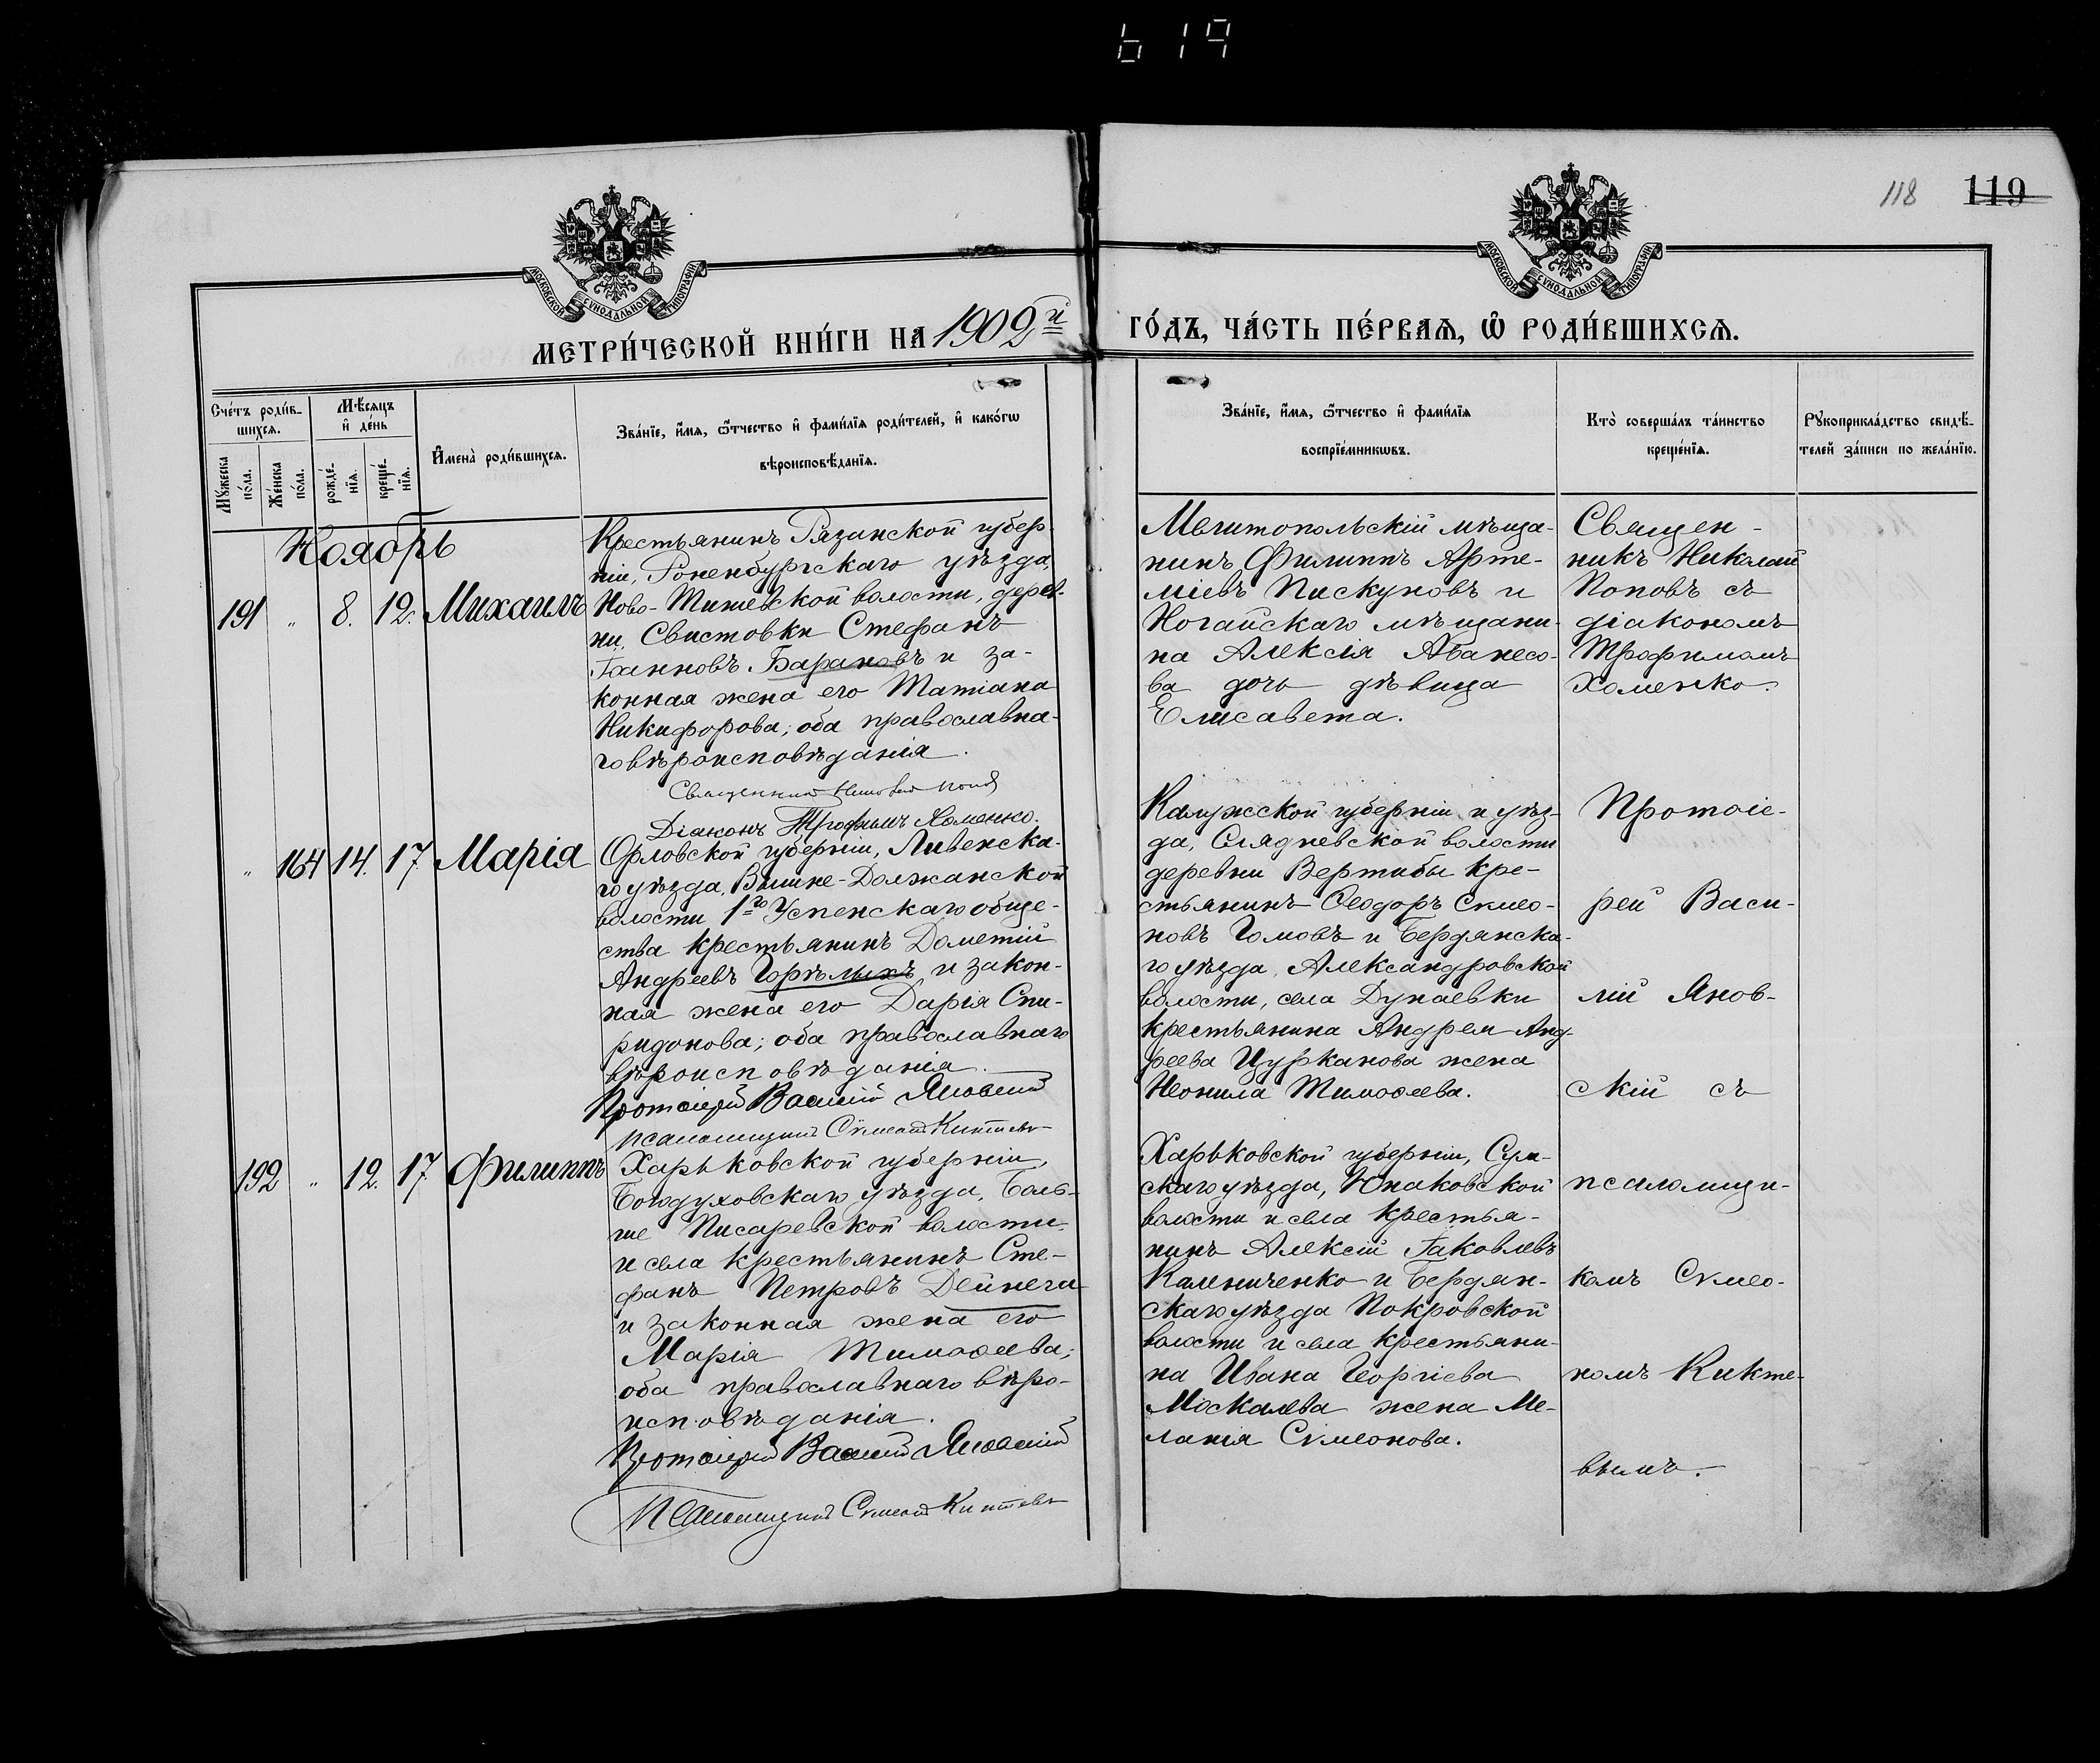 619
118 119
МОСКОВСКОЙ СѴНОДАЛЬНОЙ ТИПОГРАФІИ
МОСКОВСКОЙ СѴНОДАЛЬНОЙ ТИПОГРАФІИ
МЕТРИ́ЧЕСКОЙ КНИ́ГИ НА 1902й
ГО́ДЪ, ЧА́СТЬ ПЕ́РВАЯ, Ѿ РОДИ́ВШИХСЯ.
Сче́тъ роди́в-
шихся.
Мѣ́сяцъ
и де́нь
Му́жеска
по́ла.
Же́нска
по́ла.
рожде́-
нїя.
креще́-
нїя.
Имена̀ роди́вшихся.
Зва́нїе, и́мя, ѻ́тчество и фами́лїя роди́телей, и како́гѡ
вѣроисповѣ́данїя.
Зва́нїе, и́мя, ѻ́тчество и фами́лїя
воспрїе́мникѡвъ.
Кто̀ соверша́лъ та́инство
креще́нїя.
Рꙋкоприкла́дство свидѣ́-
телей за́писи по жела́нїю.
Ноябрь
191 " 8. 12. Михаилъ
Крестьянинъ Рязанской губер-
ніи, Роненбургскаго уѣзда,
Ново-Тишевской волости, дерев-
ни Свистовки Стефанъ
Іоанновъ Барановъ и за-
конная жена его Татіана
Никифорова; оба православна-
го вѣроисповѣданія.
Священникъ Николай Поповъ
Діаконъ Трофимъ Хоменко.
Мелитопольскій мѣща-
нинъ Филиппъ Арте-
міевъ Пискуновъ и
Ногайскаго мѣщани-
на Алексія Абанесо-
ва дочь дѣвица
Елисавета.
Священ-
никъ Николай
Поповъ съ
діакономъ
Трофимомъ
Хоменко.
" 164 14. 17. Марія
Орловской губерніи, Ливенска-
го уѣзда, Вышне-Должанской
волости 1го Успенскаго обще-
ства крестьянинъ Дометій
Андреевъ Горѣлыхъ и закон-
ная жена его Дарія Спи-
ридонова; оба православнаго
вѣроисповѣданія.
Протоіерей Василій Яновскій
Псаломщикъ Сѵмеонъ Киктевъ
Калужской губерніи и уѣз-
да, Слядневской волости
деревни Вертибы кре-
стьянинъ Ѳеодоръ Сѵмео-
новъ Гомовъ и Бердянска-
го уѣзда, Александровской
волости, села Дунаевки
крестьянина Андрея Анд-
реева Цурканова жена
Неонила Тимоѳеева.
Протоіе-
рей Васи-
лій Янов-
скій съ
псаломщи-
комъ Сѵмео-
номъ Кикте-
вымъ.
192 " 12. 17. Филиппъ
Харьковской губерніи,
Богодуховскаго уѣзда, Боль-
ше Писаревской волости
и села крестьянинъ Сте-
фанъ Петровъ Дейнега
и законная жена его
Марія Тимоѳеева;
оба православнаго вѣро-
исповѣданія.
Протоіерей Василій Яновскій
Псаломщикъ Сѵмеонъ Киктевъ
Харьковской губерніи, Сум-
скаго уѣзда, Юнаковской
волости и села крестья-
нинъ Алексій Іаковлевъ
Калениченко и Бердян-
скаго уѣзда Покровской
волости и села крестьяни-
на Ивана Георгіева
Москалева жена Ме-
ланія Сѵмеонова.